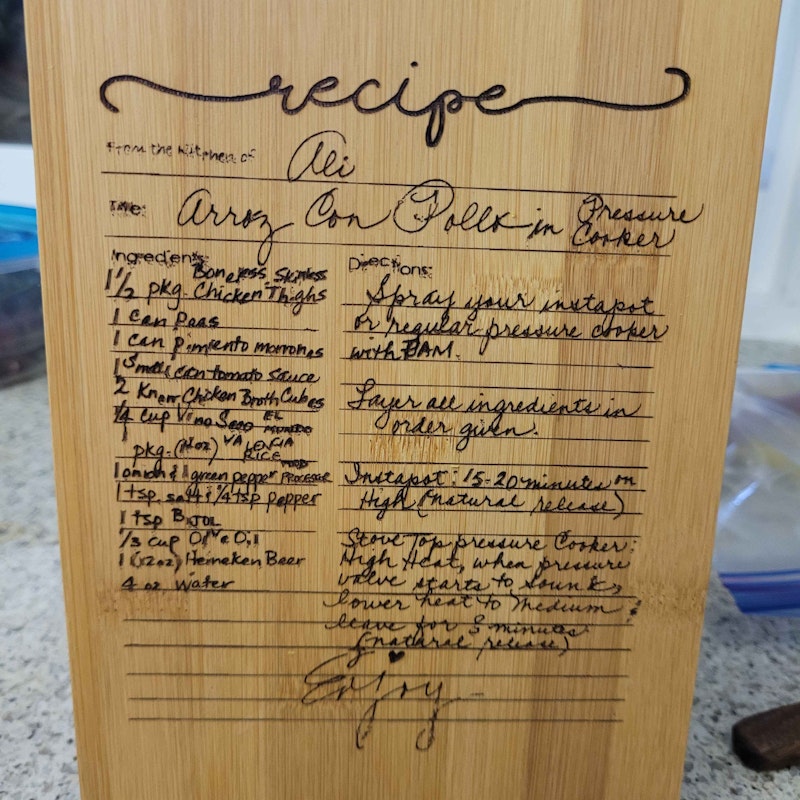 recipe
From the kitchen of Ali
Title: Arroz Con Pollo in Pressure
Cooker
Ingredients:
Boneless Skinless
1 1/2 pkg. Chicken Thighs
1 can peas
1 can pimiento morrones
1 small can tomato sauce
2 Knorr Chicken Broth Cubes
1/4 cup Vino Seco
1 pkg. (14oz) VALENCIA RICE
1 onion & 1 green pepper PROCESSOR
1 tsp salt & 1/4 tsp pepper
1 tsp BIJOL
1/3 cup Olive Oil
1 (12oz) Heineken Beer
4 oz Water
Directions:
Spray your instapot
or regular pressure cooker
with PAM.
Layer all ingredients in
order given.
Instapot: 15-20 minutes on
High (natural release)
Stove Top pressure Cooker:
High Heat, when pressure
valve starts to sound,
lower heat to medium &
leave for 8 minutes
(natural release)
Enjoy